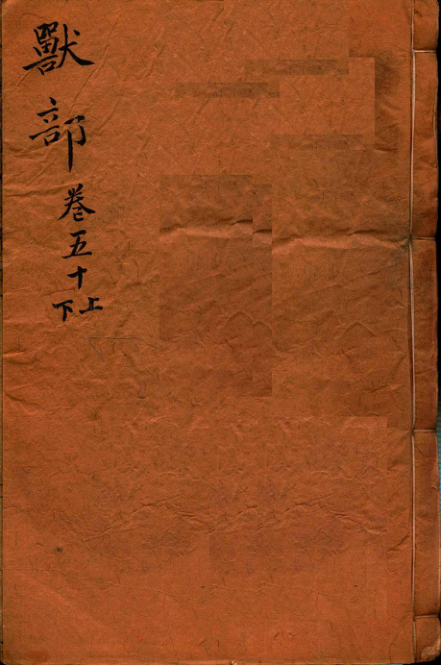 獸部卷五十上下